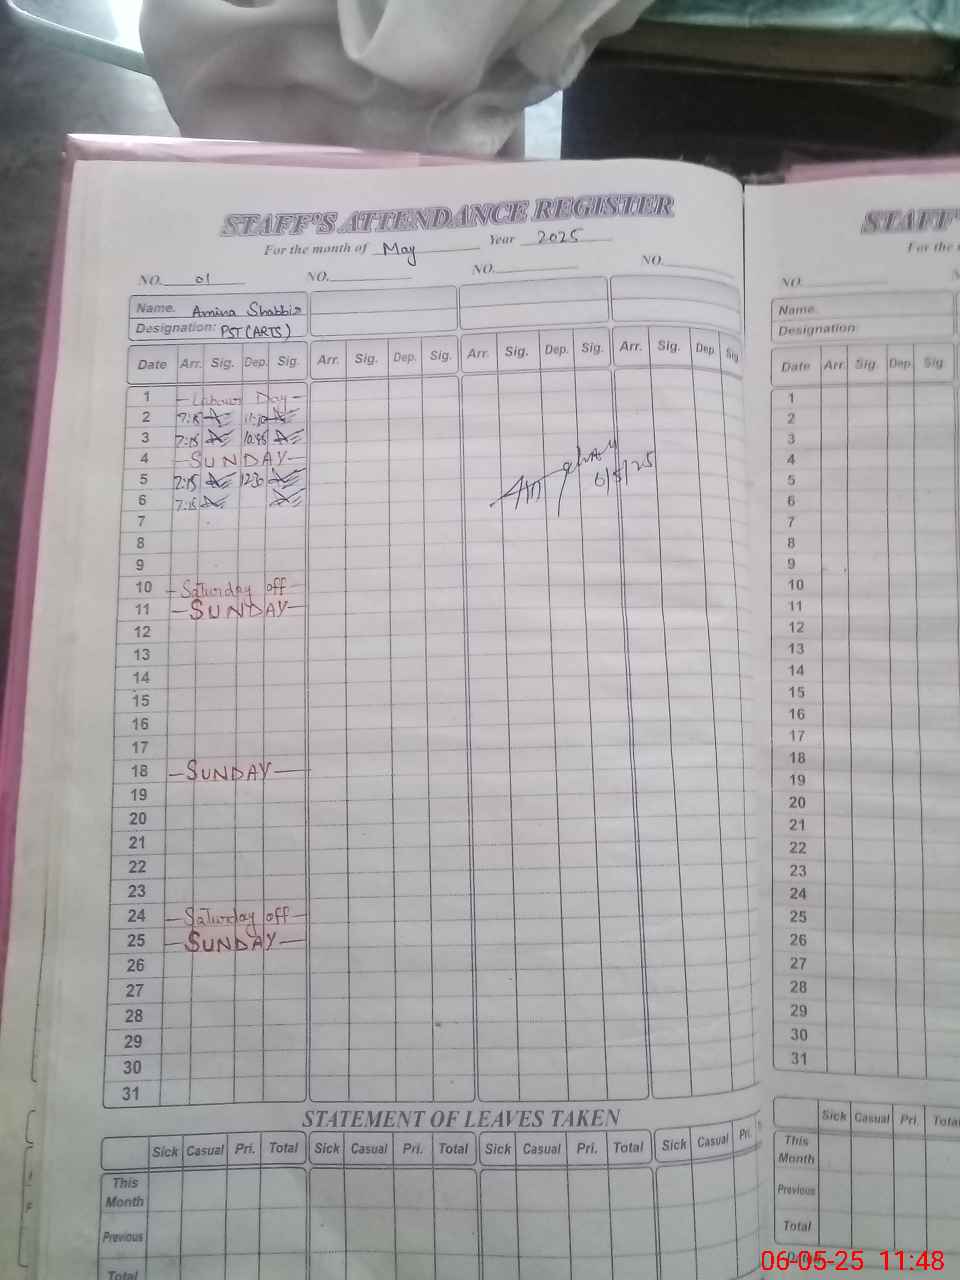 STAFF'S ATTENDANCE REGISTER
For the month of May Year 2025
NO. 01 NO. NO. NO.
Name. Amina Shabbir
Designation: PST (ARTS)
Date Arr. Sig. Dep. Sig. Arr. Sig. Dep. Sig. Arr. Sig. Dep. Sig. Arr. Sig. Dep. Sig
1 - Labour Day -
2 7:15
3 7:15
4 - SUNDAY -
5 7:15 12:30
6 7:15
6/5/25
7
8
9
10 - Saturday off -
11 - SUNDAY -
12
13
14
15
16
17
18 - SUNDAY -
19
20
21
22
23
24 - Saturday off -
25 - SUNDAY -
26
27
28
29
30
31
STATEMENT OF LEAVES TAKEN
Sick Casual Pri. Total Sick Casual Pri. Total Sick Casual Pri. Total Sick Casual Pri.
This Month
Previous
Total
STAFF'
For the
NO.
Name.
Designation:
Date Arr. Sig. Dep. Sig.
1
2
3
4
5
6
7
8
9
10
11
12
13
14
15
16
17
18
19
20
21
22
23
24
25
26
27
28
29
30
31
Sick Casual Pri. Tota
This Month
Previous
Total
06-05-25 11:48